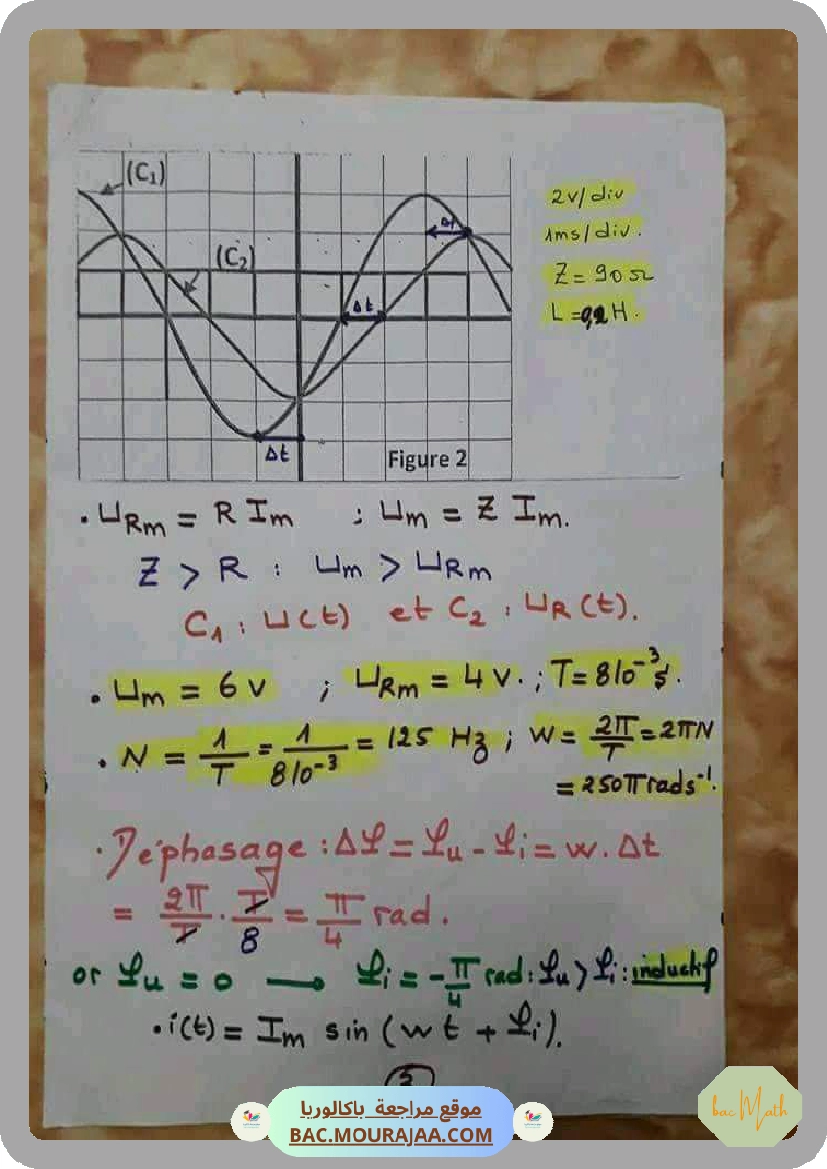 (C₁)
(C₂)
Δt
Δt
Δt
Figure 2
2v/div
1ms/div.
Z = 90 Ω
L = 0,2 H.
. U_Rm = R Im ; Um = Z Im.
Z > R : Um > U_Rm
C₁ : U(t) et C₂ : U_R(t).
. Um = 6 V ; U_Rm = 4 V. ; T = 8 10⁻³ s.
. N = 1/T = 1/8 10⁻³ = 125 Hz ; W = 2π/T = 2πN
= 250π rad s⁻¹.
. Déphasage : Δφ = φu - φi = w . Δt
= 2π/T . T/8 = π/4 rad.
or φu = 0 → φi = -π/4 rad : φu > φi : inductif
. i(t) = Im sin (wt + φi).
موقع مراجعة باكالوريا
BAC.MOURAJAA.COM
bac Math